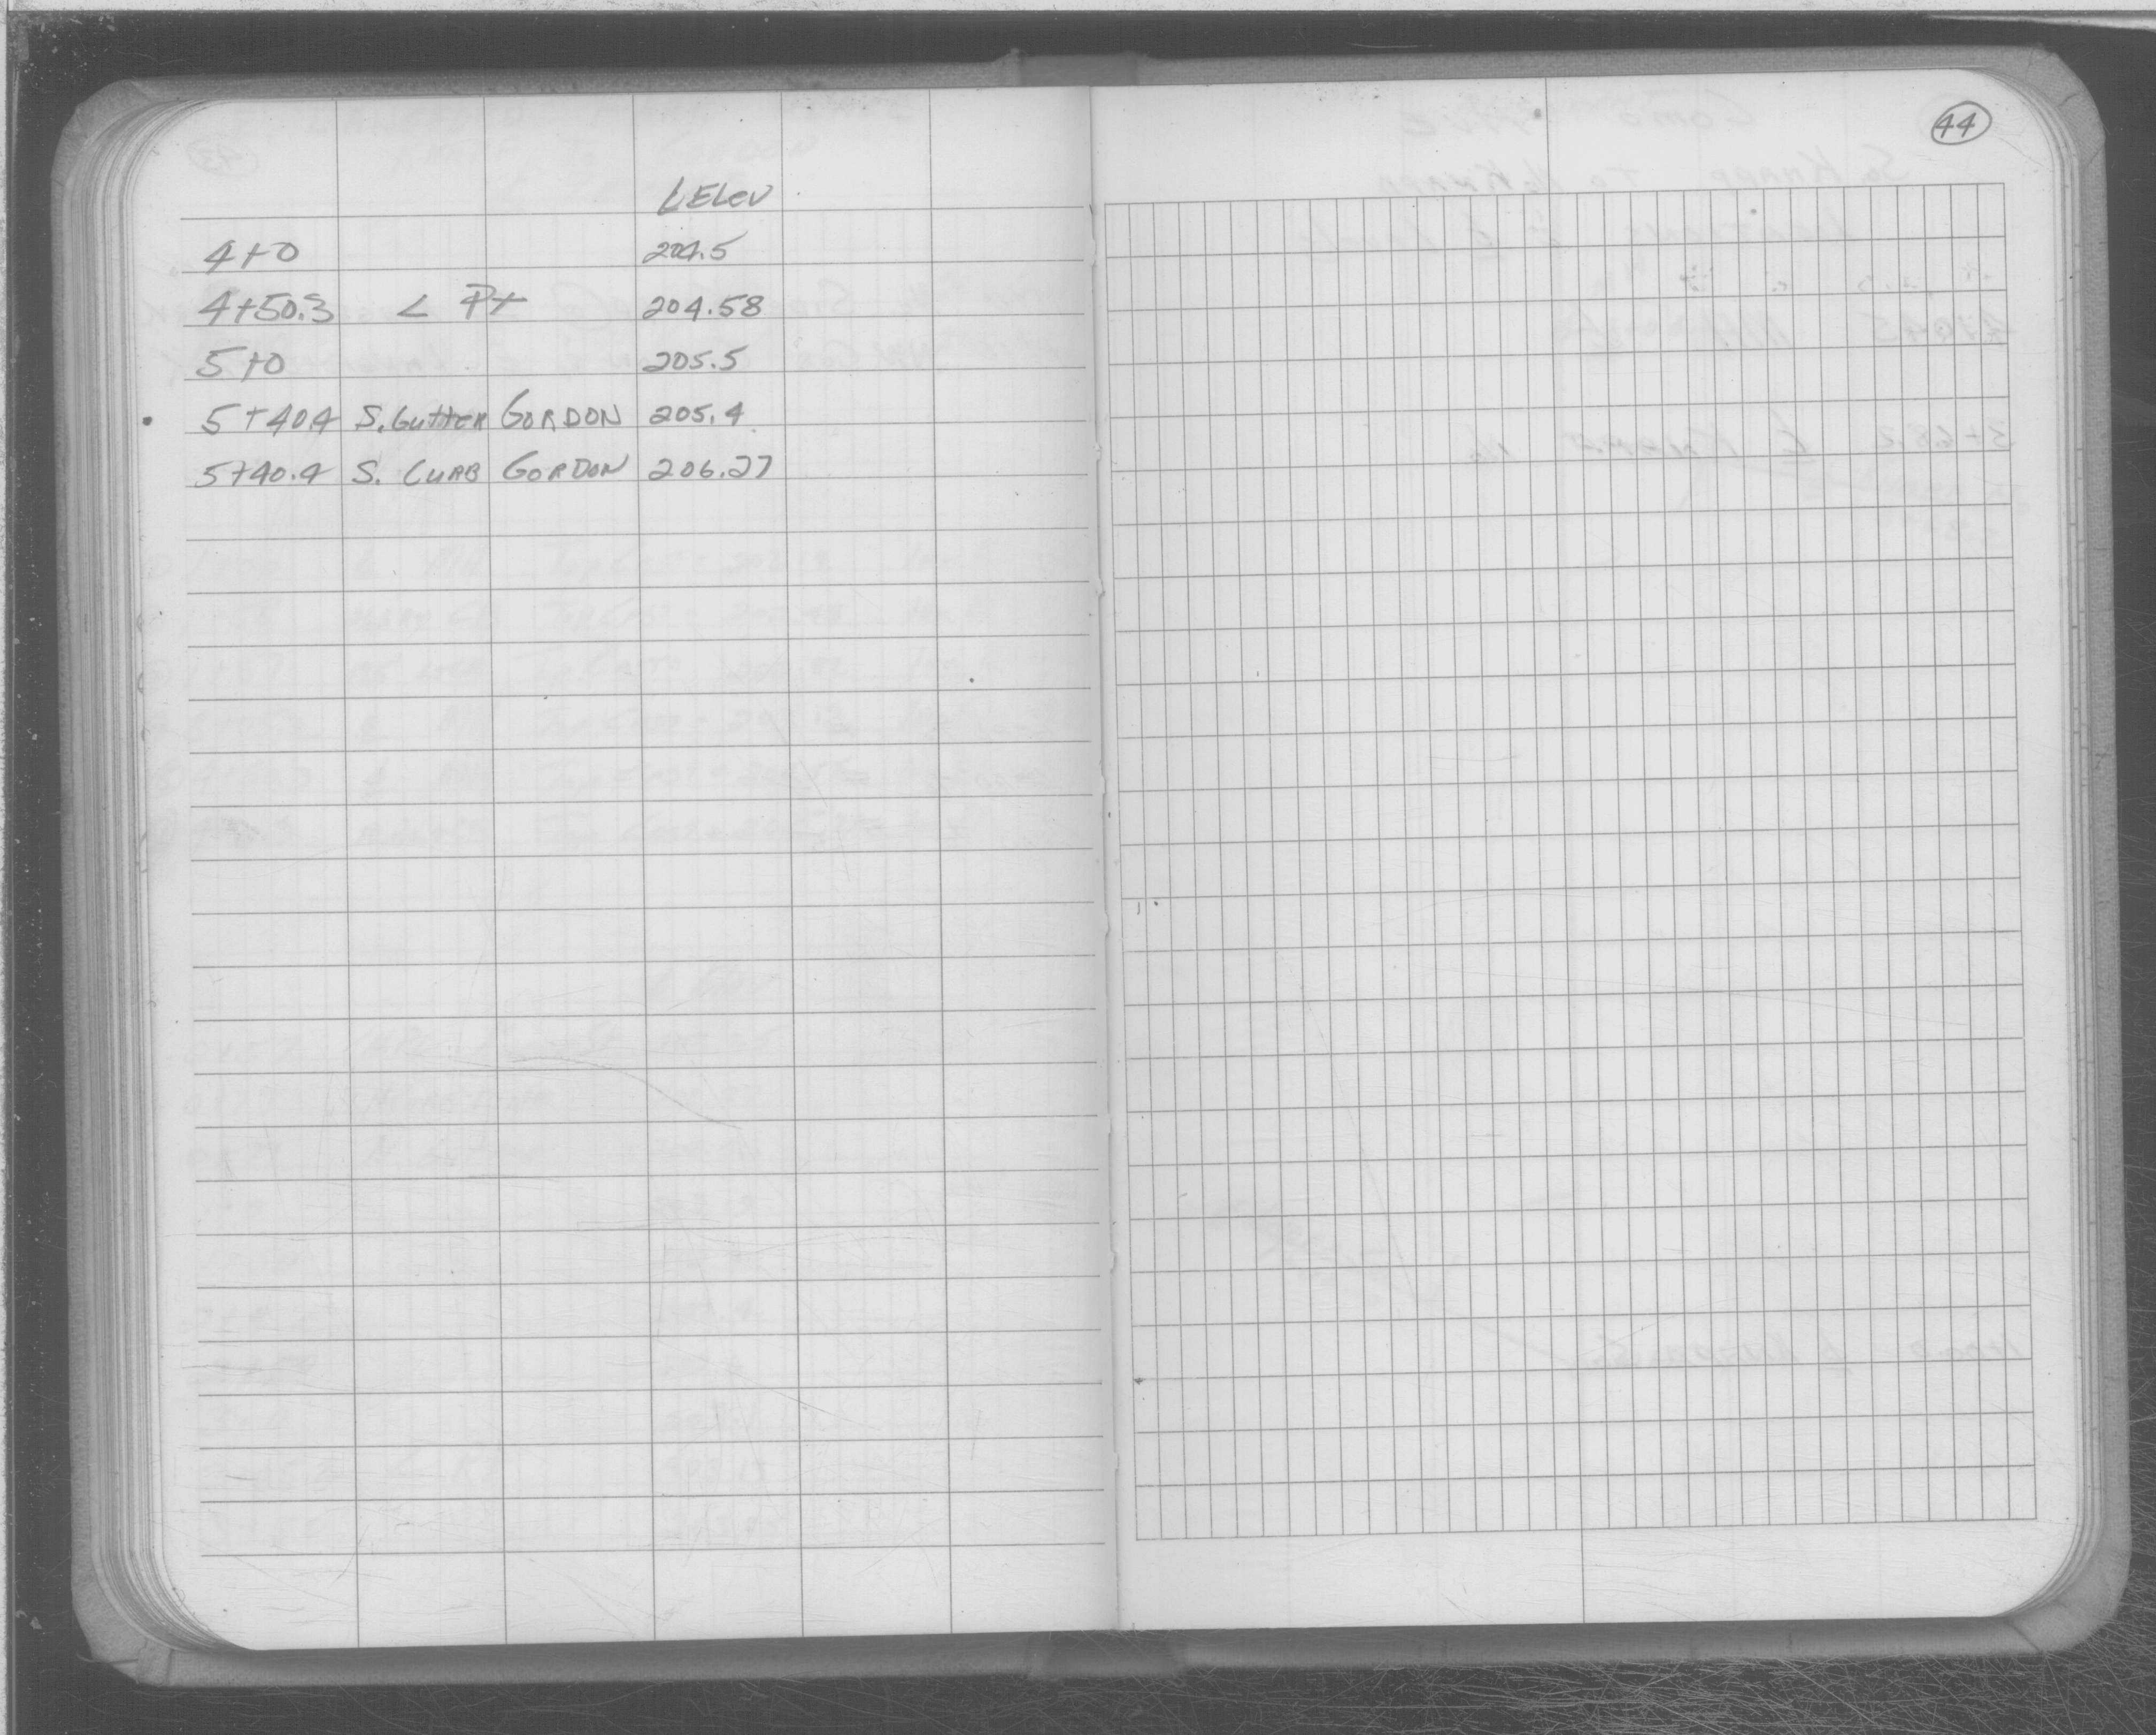 44
LELEV
4+0 204.5
4+50.3 < Pt 204.58
5+0 205.5
5+40.4 S. Gutter GORDON 205.4
5+40.4 S. CURB GORDON 206.27